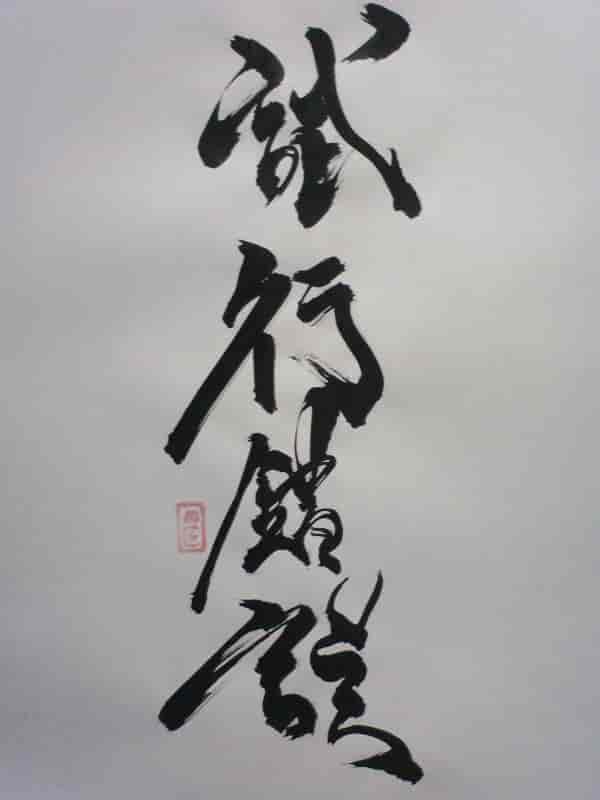 試行錯誤